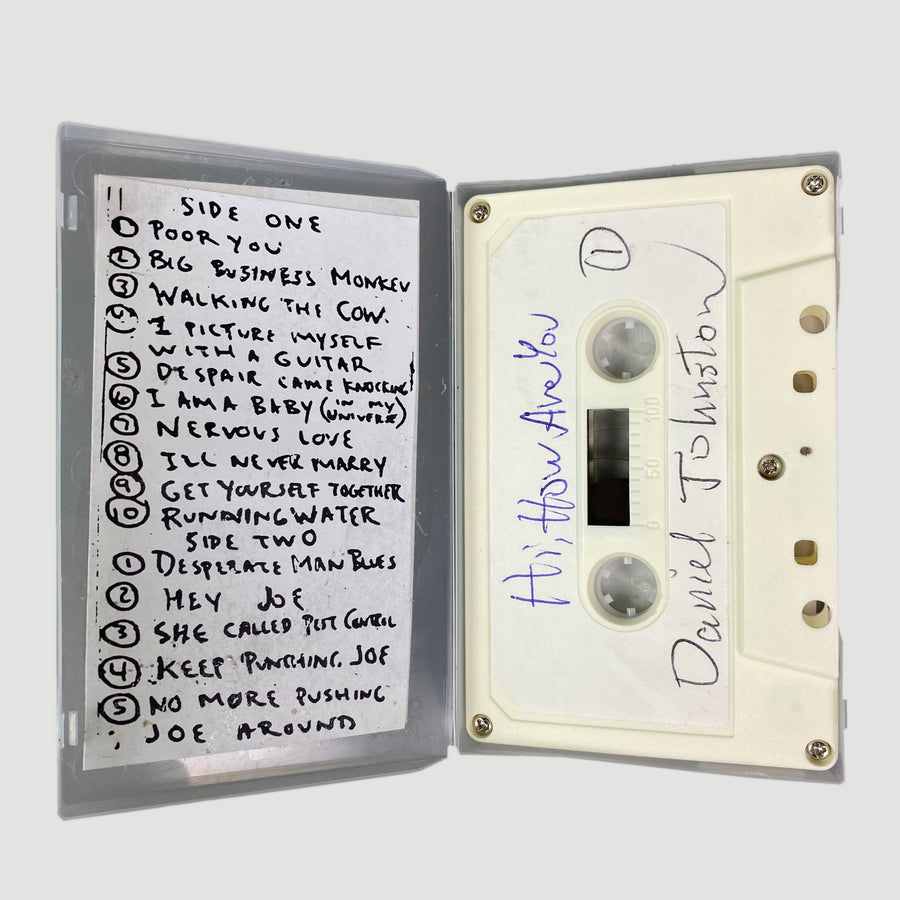 SIDE ONE
1 POOR YOU
2 BIG BUSINESS MONKEY
3 WALKING THE COW.
I PICTURE MYSELF
WITH A GUITAR
5 DESPAIR CAME KNOCKING
6 I AM A BABY (IN MY UNIVERSE)
7 NERVOUS LOVE
8 I'LL NEVER MARRY
9 GET YOURSELF TOGETHER
10 RUNNING WATER
SIDE TWO
1 DESPERATE MAN BLUES
2 HEY JOE
3 SHE CALLED PEST CONTROL
4 KEEP PUNCHING JOE
5 NO MORE PUSHING
JOE AROUND
1
Hi, How Are You
100
50
0
Daniel Johnston